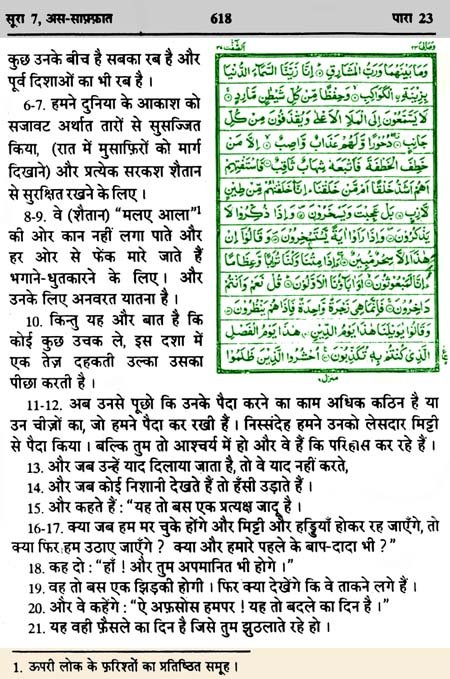 सूरा 7, अस-साफ़्फ़ात 618 पारा 23
कुछ उनके बीच है सबका रब है और
पूर्व दिशाओं का भी रब है ।
6-7. हमने दुनिया के आकाश को
सजावट अर्थात तारों से सुसज्जित
किया, (रात में मुसाफ़िरों को मार्ग
दिखाने) और प्रत्येक सरकश शैतान
से सुरक्षित रखने के लिए ।
8-9. वे (शैतान) “मलए आला”1
की ओर कान नहीं लगा पाते और
हर ओर से फेंक मारे जाते हैं
भगाने-धुतकारने के लिए । और
उनके लिए अनवरत यातना है ।
10. किन्तु यह और बात है कि
कोई कुछ उचक ले, इस दशा में
एक तेज़ दहकती उल्का उसका
पीछा करती है ।
وَمَا بَيْنَهُمَا وَرَبُّ الْمَشَارِقِ ۞ إِنَّا زَيَّنَّا السَّمَاءَ الدُّنْيَا
بِزِينَةٍ الْكَوَاكِبِ ۞ وَحِفْظًا مِّن كُلِّ شَيْطَٰنٍ مَّارِدٍ ۞
لَا يَسَّمَّعُونَ إِلَى الْمَلَإِ الْأَعْلَىٰ وَيُقْذَفُونَ مِن كُلِّ
جَانِبٍ ۞ دُحُورًا وَلَهُمْ عَذَابٌ وَاصِبٌ ۞ إِلَّا مَنْ
خَطِفَ الْخَطْفَةَ فَأَتْبَعَهُ شِهَابٌ ثَاقِبٌ ۞ فَاسْتَفْتِهِمْ
أَهُمْ أَشَدُّ خَلْقًا أَم مَّنْ خَلَقْنَا ۚ إِنَّا خَلَقْنَٰهُم مِّن طِينٍ
لَّازِبٍ ۞ بَلْ عَجِبْتَ وَيَسْخَرُونَ ۞ وَإِذَا ذُكِّرُوا لَا
يَذْكُرُونَ ۞ وَإِذَا رَأَوْا آيَةً يَسْتَسْخِرُونَ ۞ وَقَالُوا إِنْ
هَٰذَا إِلَّا سِحْرٌ مُّبِينٌ ۞ أَإِذَا مِتْنَا وَكُنَّا تُرَابًا وَعِظَامًا
أَإِنَّا لَمَبْعُوثُونَ ۞ أَوَآبَاؤُنَا الْأَوَّلُونَ ۞ قُلْ نَعَمْ وَأَنتُمْ
دَاخِرُونَ ۞ فَإِنَّمَا هِيَ زَجْرَةٌ وَاحِدَةٌ فَإِذَا هُمْ يَنظُرُونَ ۞
وَقَالُوا يَٰوَيْلَنَا هَٰذَا يَوْمُ الدِّينِ ۞ هَٰذَا يَوْمُ الْفَصْلِ
الَّذِي كُنتُم بِهِ تُكَذِّبُونَ ۞ احْشُرُوا الَّذِينَ ظَلَمُوا
11-12. अब उनसे पूछो कि उनके पैदा करने का काम अधिक कठिन है या
उन चीज़ों का, जो हमने पैदा कर रखी हैं । निस्संदेह हमने उनको लेसदार मिट्टी
से पैदा किया । बल्कि तुम तो आश्चर्य में हो और वे हैं कि परिहास कर रहे हैं ।
13. और जब उन्हें याद दिलाया जाता है, तो वे याद नहीं करते,
14. और जब कोई निशानी देखते हैं तो हँसी उड़ाते हैं ।
15. और कहते हैं : “यह तो बस एक प्रत्यक्ष जादू है ।
16-17. क्या जब हम मर चुके होंगे और मिट्टी और हड्डियाँ होकर रह जाएँगे, तो
क्या फिर हम उठाए जाएँगे ? क्या और हमारे पहले के बाप-दादा भी ?”
18. कह दो : “हाँ ! और तुम अपमानित भी होगे ।”
19. वह तो बस एक झिड़की होगी । फिर क्या देखेंगे कि वे ताकने लगे हैं ।
20. और वे कहेंगे : “ऐ अफ़सोस हमपर ! यह तो बदले का दिन है ।”
21. यह वही फ़ैसले का दिन है जिसे तुम झुठलाते रहे हो ।
1. ऊपरी लोक के फ़रिश्तों का प्रतिष्ठित समूह ।